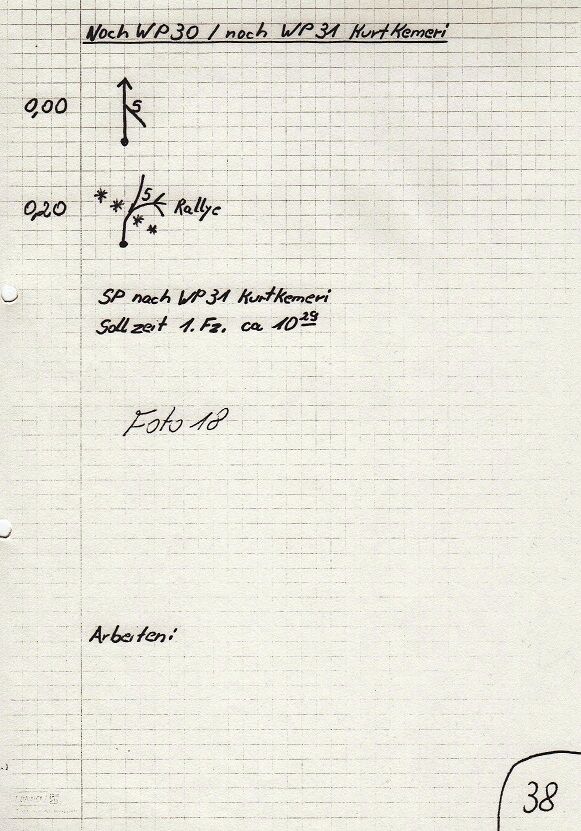 Nach WP30 / nach WP31 KurtKemeri
0,00
S
0,20
S
Rallye
SP nach WP31 KurtKemeri
Sollzeit 1. Fz. ca 10 29
Foto 18
Arbeiten:
38